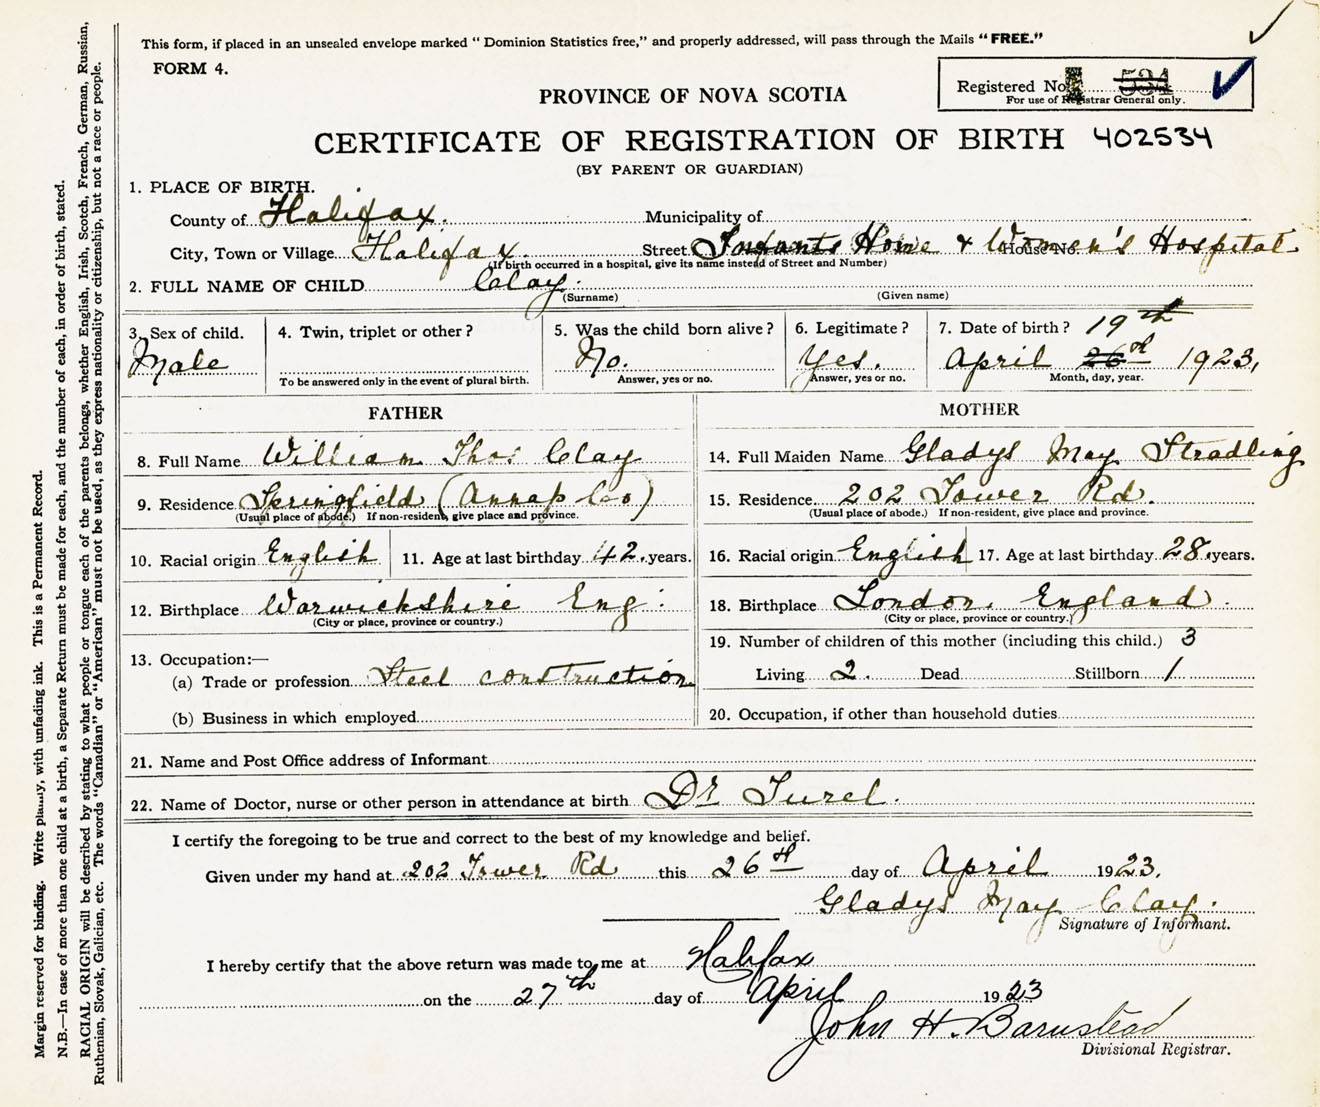 This form, if placed in an unsealed envelope marked "Dominion Statistics free," and properly addressed, will pass through the Mails "FREE."
FORM 4.
Registered No. 534
For use of Registrar General only.
PROVINCE OF NOVA SCOTIA
CERTIFICATE OF REGISTRATION OF BIRTH 402534
(BY PARENT OR GUARDIAN)
1. PLACE OF BIRTH.
County of Halifax. Municipality of
City, Town or Village Halifax. Street Infants Home & Women's Hospital House No.
(If birth occurred in a hospital, give its name instead of Street and Number)
2. FULL NAME OF CHILD Clay.
(Surname) (Given name)
3. Sex of child. 4. Twin, triplet or other? 5. Was the child born alive? 6. Legitimate? 7. Date of birth? 19th
Male No. Yes. April 26th 1923,
To be answered only in the event of plural birth. Answer, yes or no. Answer, yes or no. Month, day, year.
FATHER MOTHER
8. Full Name William Thos. Clay 14. Full Maiden Name Gladys May Stradling
9. Residence Springfield (Annap Co) 15. Residence 202 Tower Rd.
(Usual place of abode.) If non-resident, give place and province. (Usual place of abode.) If non-resident, give place and province.
10. Racial origin English 11. Age at last birthday 42. years. 16. Racial origin English 17. Age at last birthday 28. years.
12. Birthplace Warwickshire Eng. 18. Birthplace London, England.
(City or place, province or country.) (City or place, province or country.)
13. Occupation:— 19. Number of children of this mother (including this child.) 3
(a) Trade or profession Steel construction Living 2. Dead Stillborn 1
(b) Business in which employed 20. Occupation, if other than household duties
21. Name and Post Office address of Informant
22. Name of Doctor, nurse or other person in attendance at birth Dr Turel.
I certify the foregoing to be true and correct to the best of my knowledge and belief.
Given under my hand at 202 Tower Rd this 26th day of April 1923.
Gladys May Clay.
Signature of Informant.
I hereby certify that the above return was made to me at Halifax
on the 27th day of April 1923
John H. Barnstead
Divisional Registrar.
Margin reserved for binding. Write plainly, with unfading ink. This is a Permanent Record.
N.B.—In case of more than one child at a birth, a Separate Return must be made for each, and the number of each, in order of birth, stated.
RACIAL ORIGIN will be described by stating to what people or tongue each of the parents belongs, whether English, Irish, Scotch, French, German, Russian,
Ruthenian, Slovak, Galician, etc. The words "Canadian" or "American" must not be used, as they express nationality or citizenship, but not a race or people.